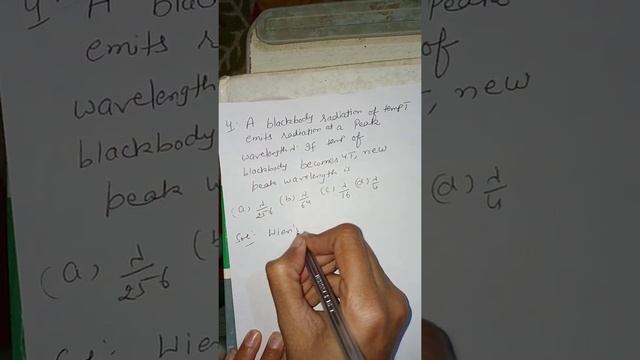 4. A blackbody radiation of temp T
emits radiation at a Peak
wavelength λ. If temp of
blackbody becomes 4T, new
peak wavelength is
(a) λ/256 (b) λ/64 (c) λ/16 (d) λ/4
Sol: Wien's